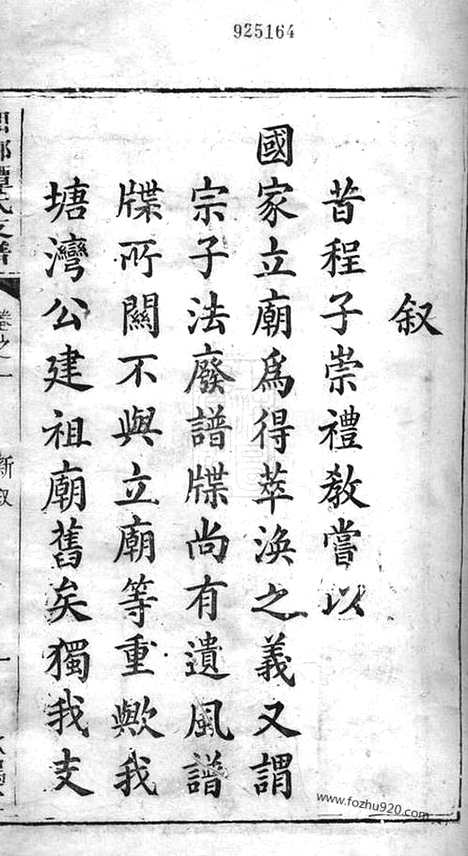 925164
叙
昔程子崇禮教嘗以
國家立廟爲得萃渙之義又謂
宗子法廢譜牒尚有遺風譜
牒所關不與立廟等重歟我
塘灣公建祖廟舊矣獨我支
譚氏支譜
卷之一
新叙
一
www.fozhu920.com